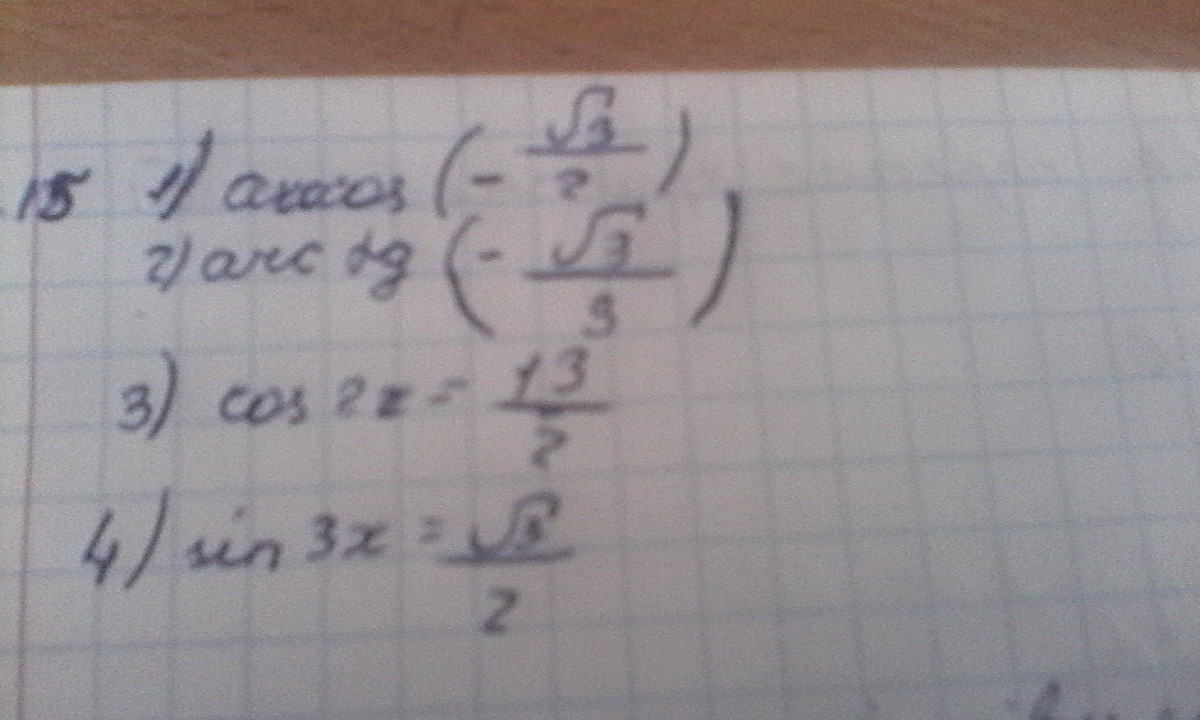 15 1) arccos (-√3/2)
2) arc tg (-√3/3)
3) cos 2x = 13/2
4) sin 3x = √3/2